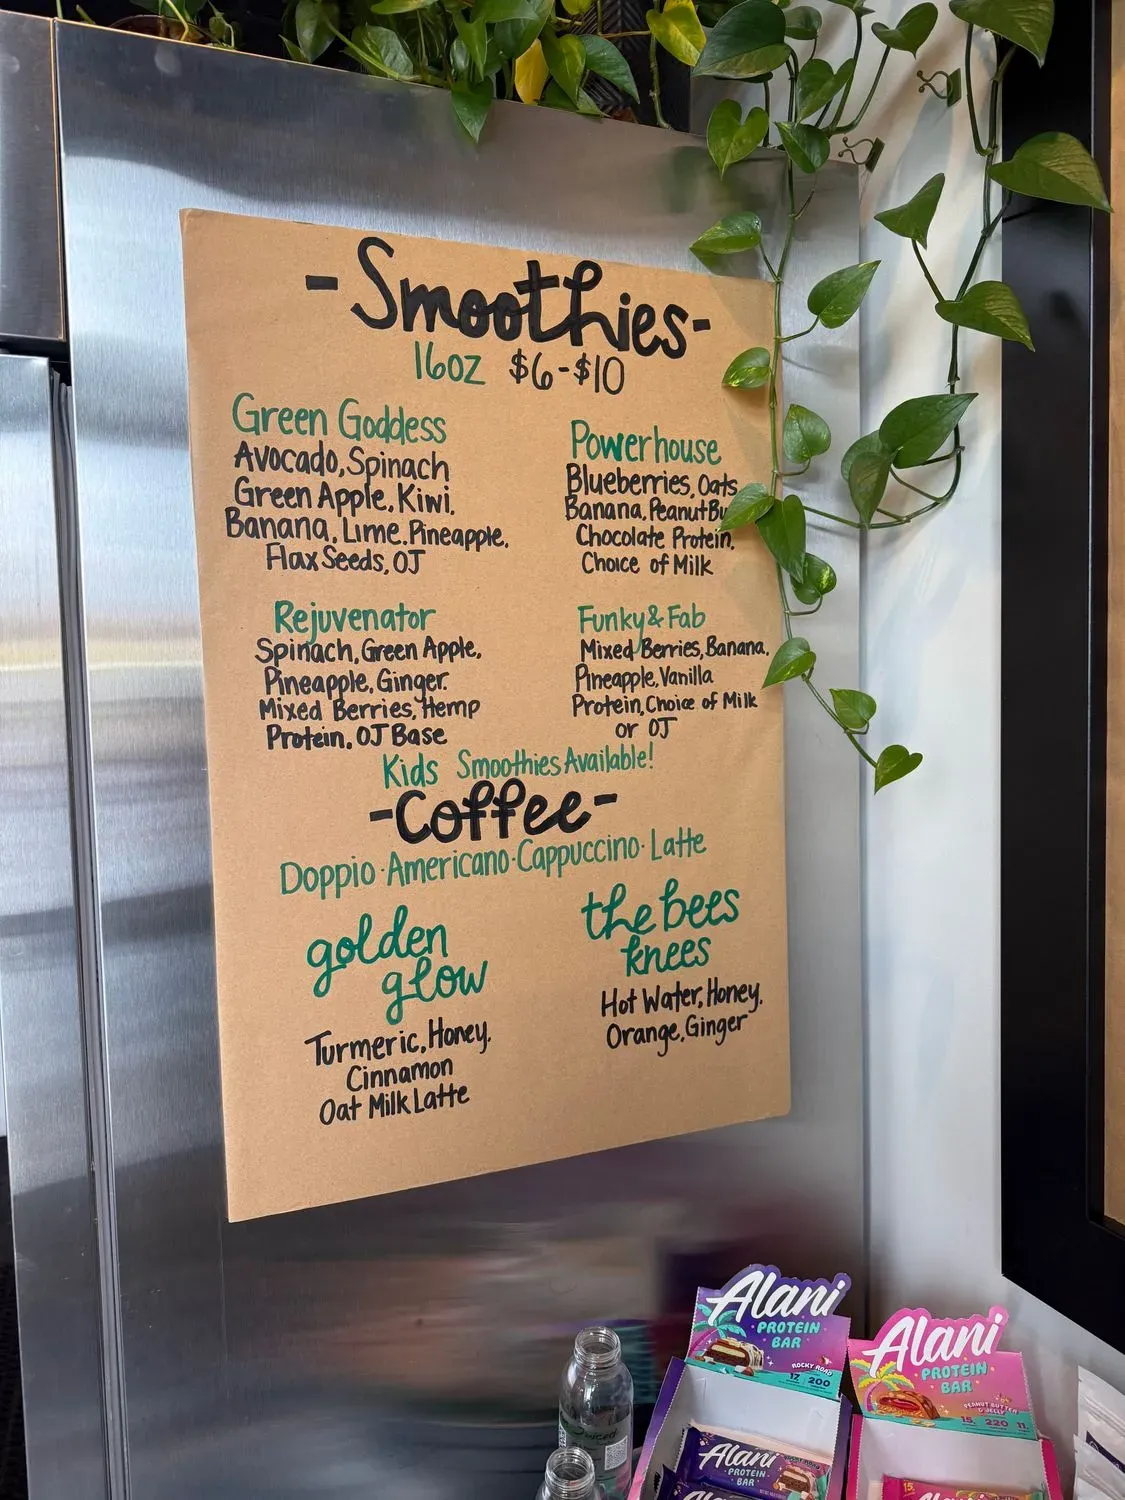 -Smoothies-
16oz $6-$10
Green Goddess
Avocado, Spinach
Green Apple, Kiwi,
Banana, Lime, Pineapple,
Flax Seeds, OJ
Powerhouse
Blueberries, Oats
Banana, Peanut Bu
Chocolate Protein,
Choice of Milk
Rejuvenator
Spinach, Green Apple,
Pineapple, Ginger,
Mixed Berries, Hemp
Protein, OJ Base
Funky & Fab
Mixed Berries, Banana,
Pineapple, Vanilla
Protein, Choice of Milk
or OJ
Kids Smoothies Available!
-Coffee-
Doppio · Americano · Cappuccino · Latte
golden
glow
Turmeric, Honey,
Cinnamon
Oat Milk Latte
the bees
knees
Hot Water, Honey,
Orange, Ginger
Alani
PROTEIN
BAR
ROCKY ROAD
17 200
Alani
PROTEIN
BAR
PEANUT BUTTER
& JELLY
15 220 11
Alani
PROTEIN
BAR
ROCKY ROAD
Alani